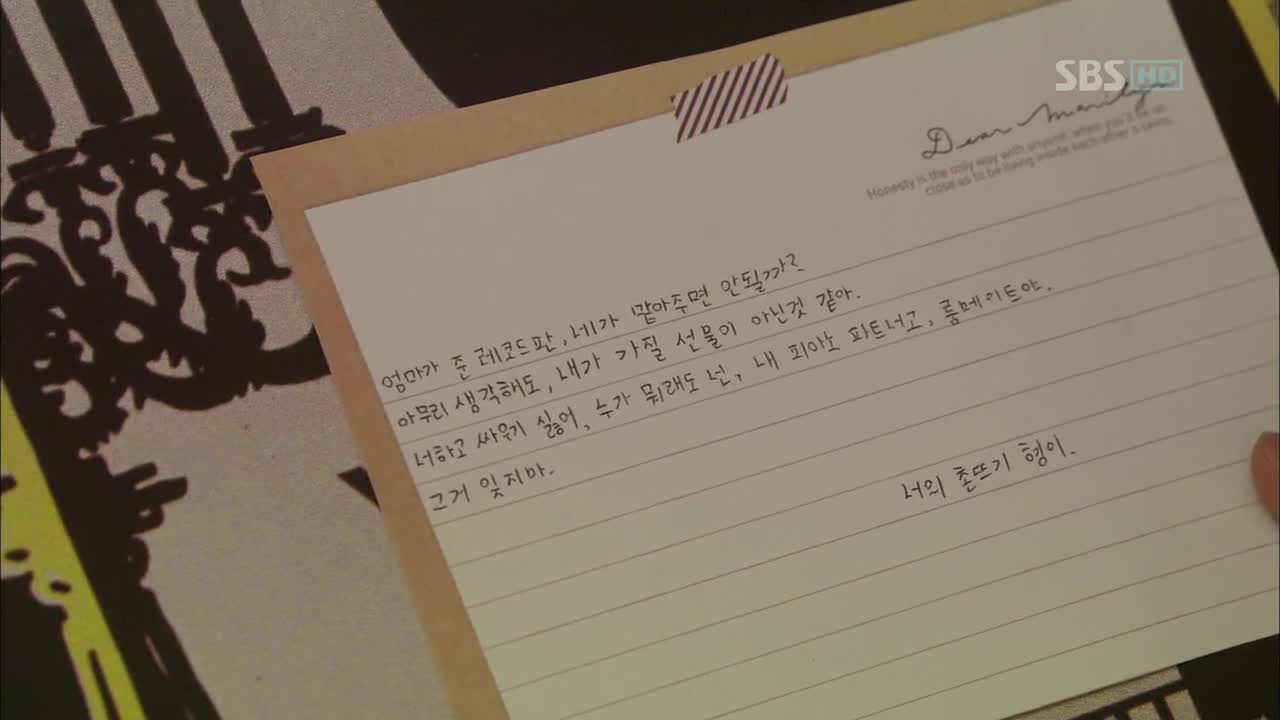 SBS HD
Dear Marilyn
Honesty is the only way with anyone, when you'll be so
close as to be living inside each other's skins.
엄마가 준 레코드판, 네가 맡아주면 안될까?
아무리 생각해도, 내가 가질 선물이 아닌것 같아.
너하고 싸우기 싫어, 수가 뭐래도 넌, 내 피아노 파트너고, 룸메이트야.
그거 잊지마.
너의 촌뜨기 형이.